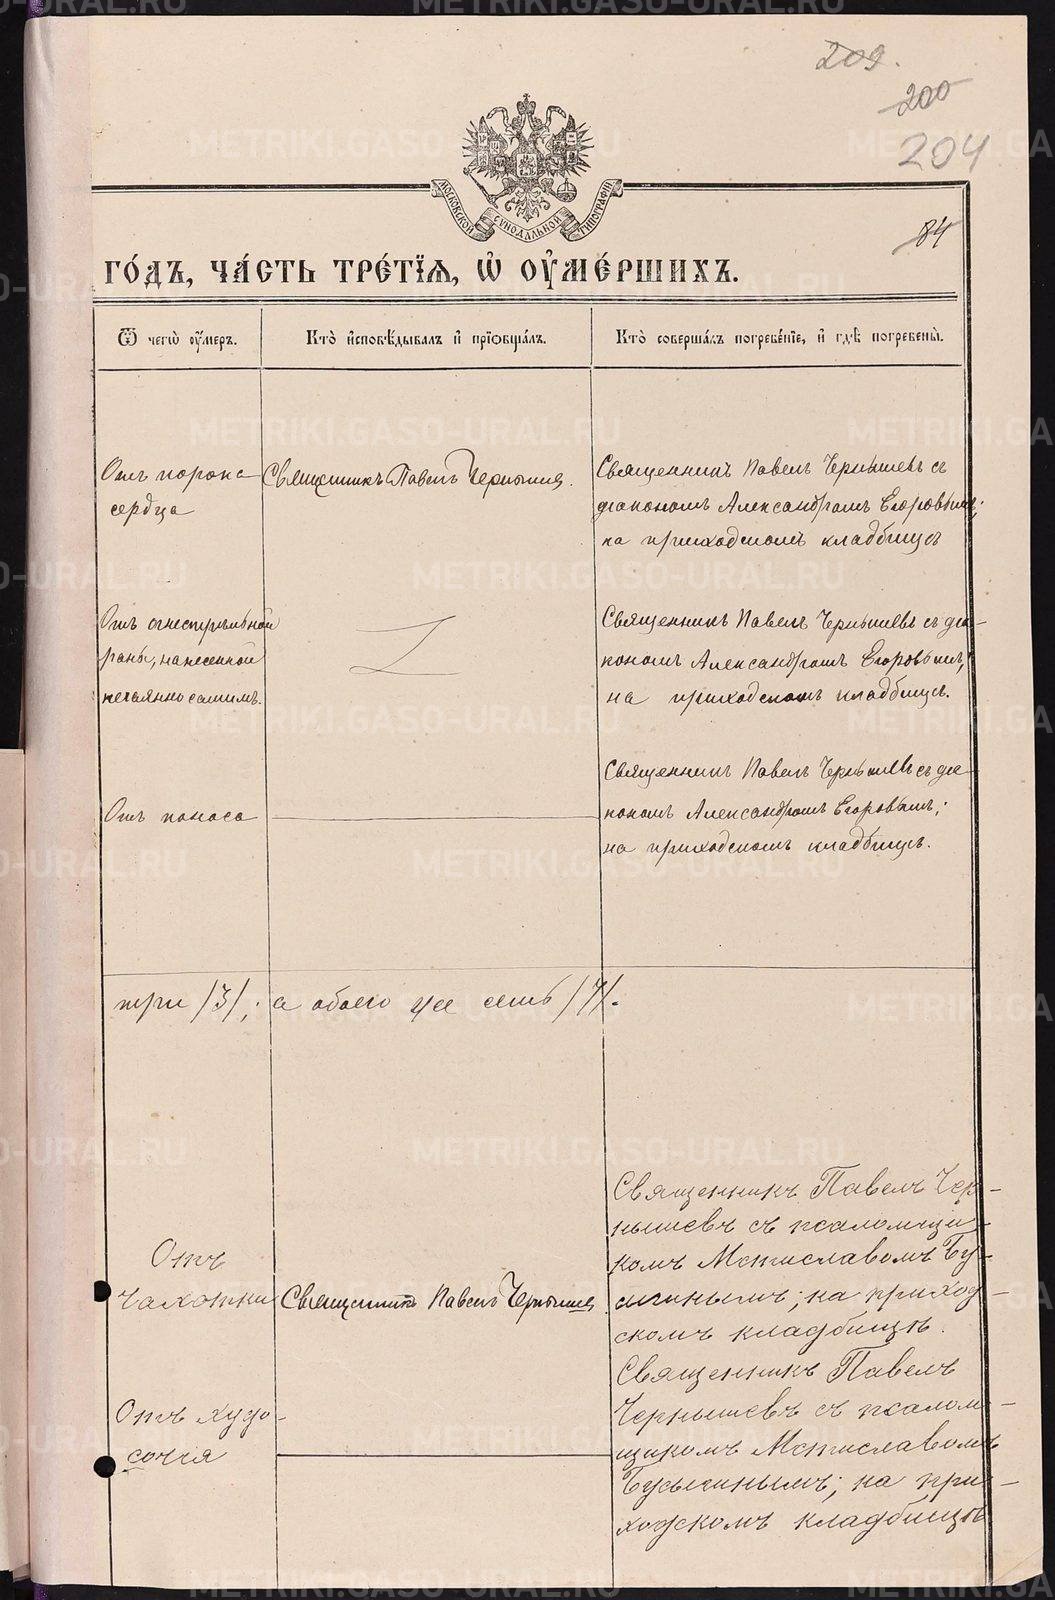 209.
200
204
МОСКОВСКОЙ СУНОДАЛЬНОЙ ТИПОГРАФІИ
84
ГО́ДЪ, ЧА́СТЬ ТРЕ́ТІѦ, Ѡ҆ ОУ҆МЕ́РШИХЪ.
Ѿ чегѡ̀ оу҆́меръ.
Кто̀ и҆сповѣ́дывалъ и҆ прїѡбща́лъ.
Кто̀ соверша́лъ погребе́нїе, и҆ гдѣ̀ погребены̀.
Отъ порока
сердца
Священникъ Павелъ Чернышев.
Священникъ Павелъ Чернышевъ съ
діакономъ Александромъ Егоровымъ;
на приходскомъ кладбищѣ
Отъ огнестрѣльной
раны, нанесенной
нечаянно самимъ.
Священникъ Павелъ Чернышевъ съ діа-
кономъ Александромъ Егоровымъ;
на приходскомъ кладбищѣ.
Отъ поноса
Священникъ Павелъ Чернышевъ съ діа-
кономъ Александромъ Егоровымъ;
на приходскомъ кладбищѣ.
три /3/; а обоего же семь /7/.
Отъ
чахотки
Священникъ Павелъ Чернышев
Священникъ Павелъ Чер-
нышевъ съ псаломщи-
комъ Мстиславомъ Бу-
сыгинымъ; на приход-
скомъ кладбищѣ.
Отъ худо-
сочія
Священникъ Павелъ
Чернышевъ съ псалом-
щикомъ Мстиславомъ
Бусыгинымъ; на при-
ходскомъ кладбищѣ
METRIKI.GASO-URAL.RU